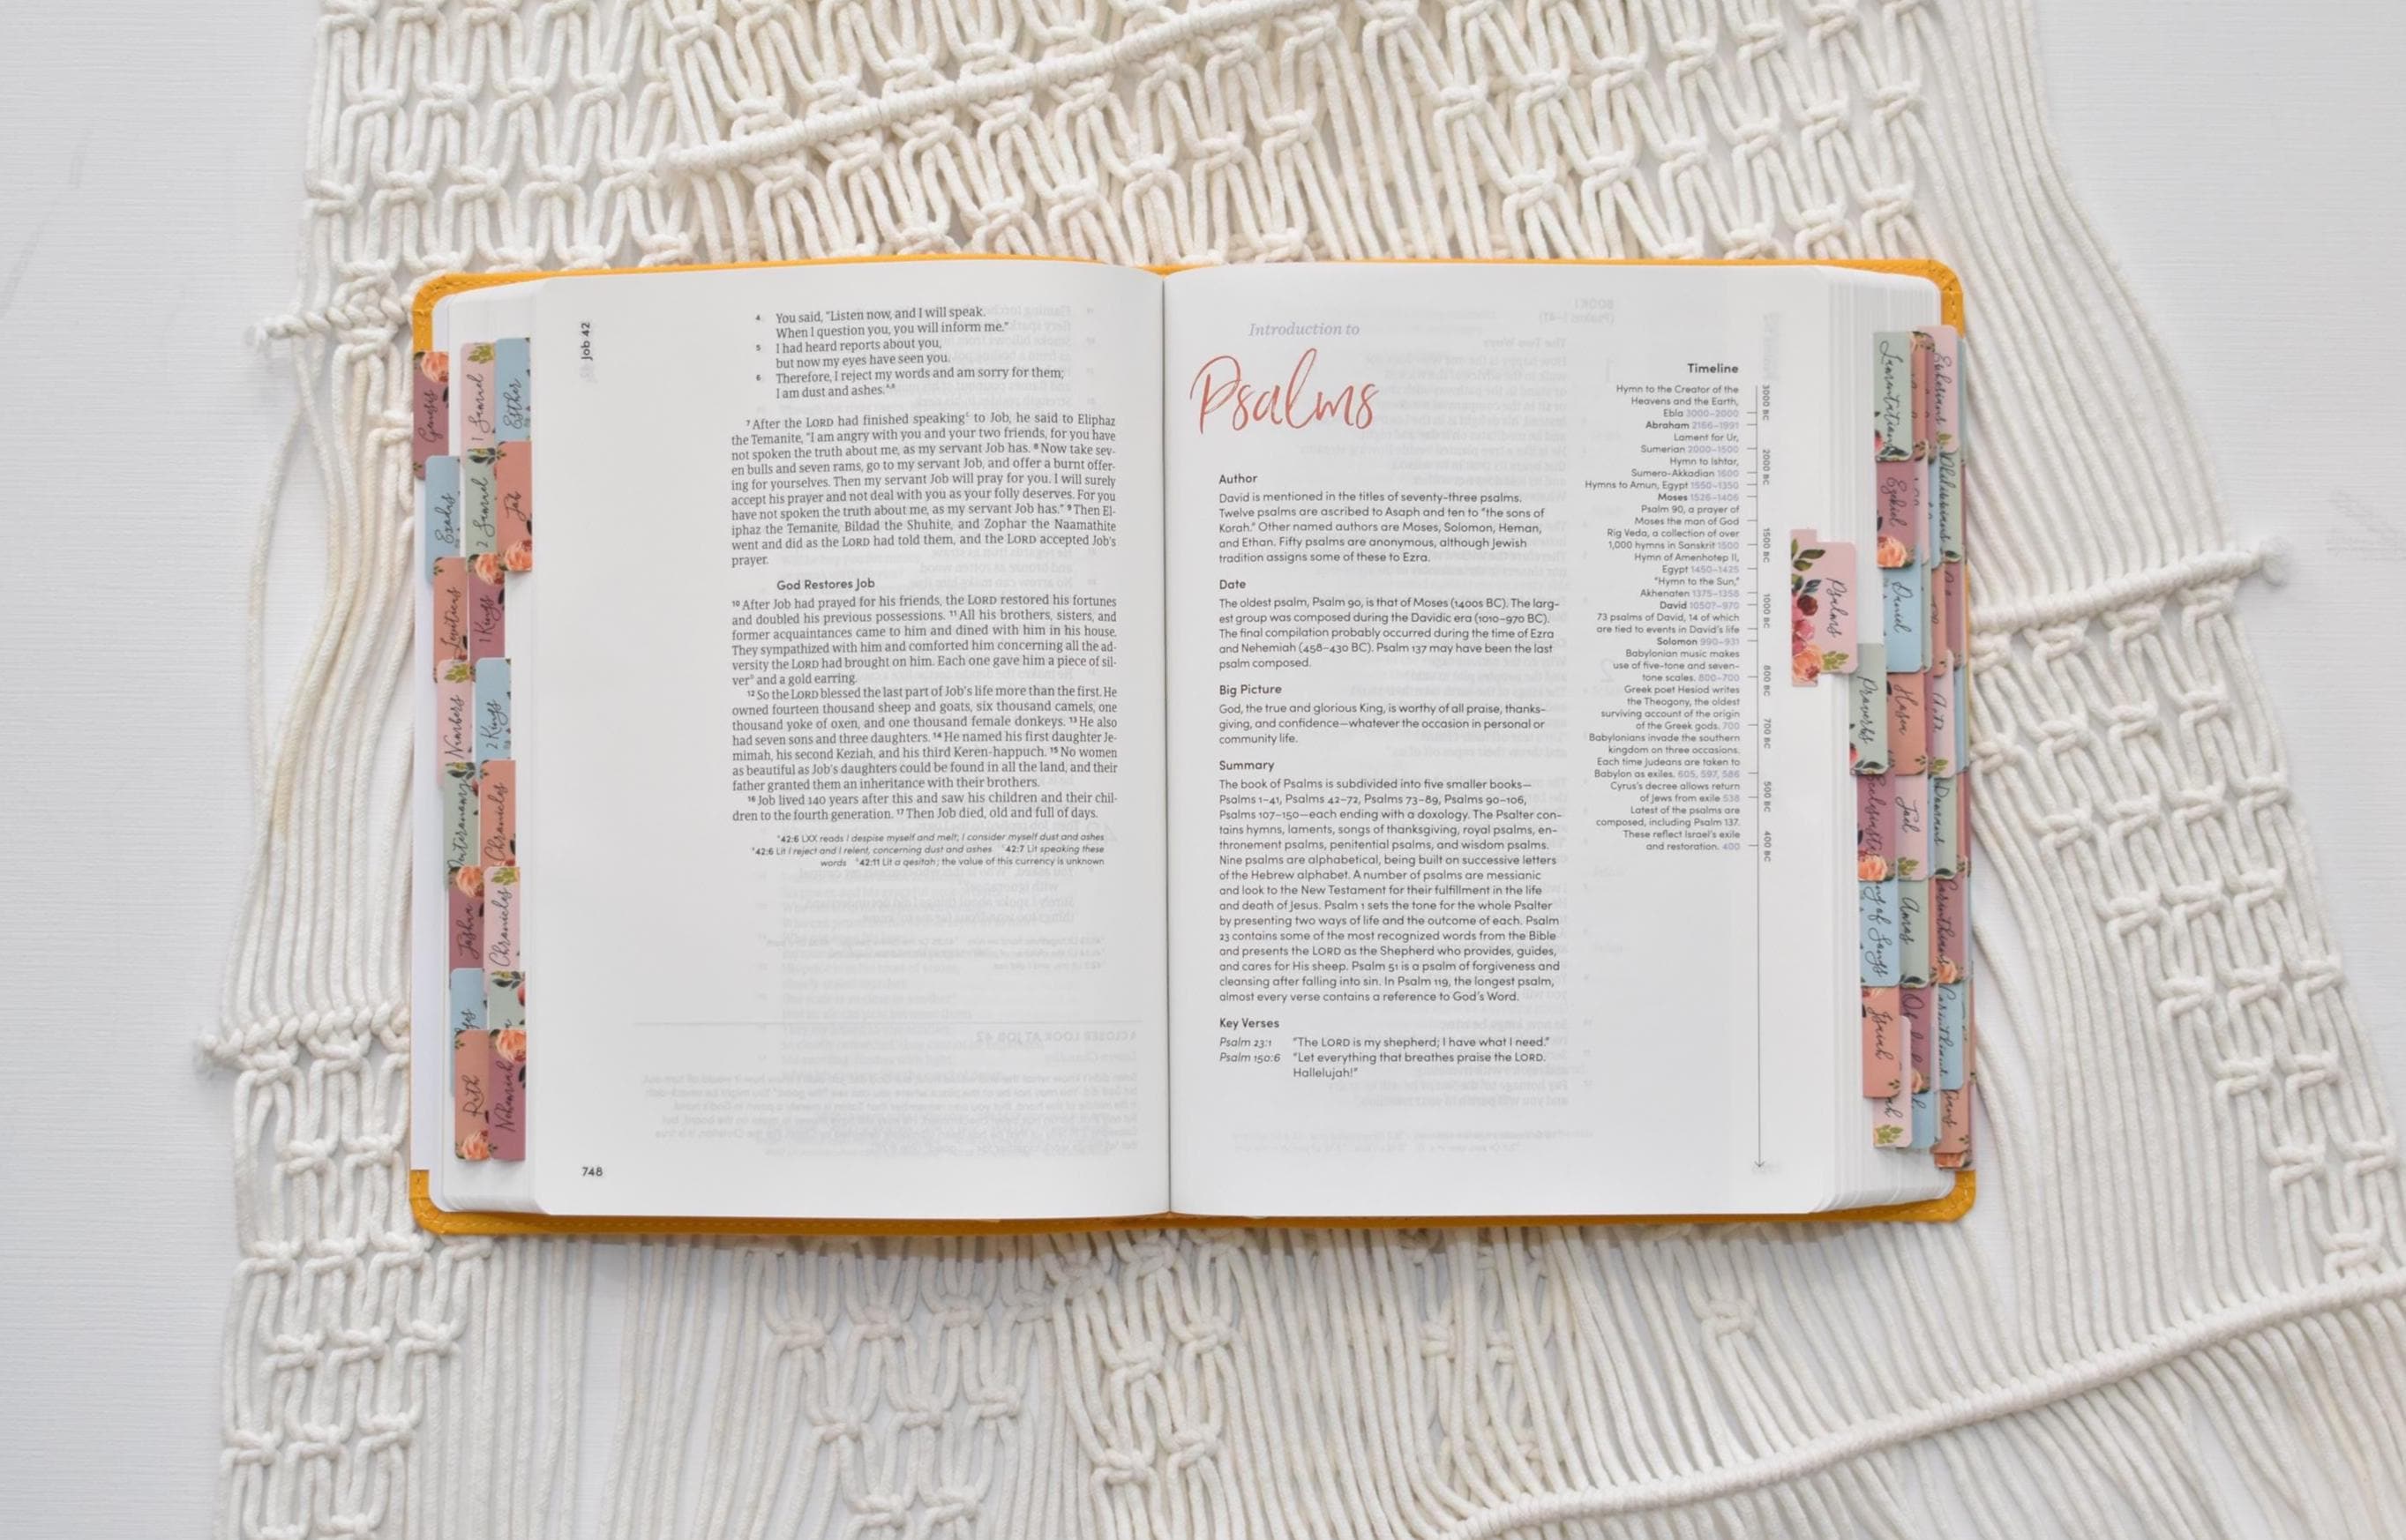 Job 42
4 You said, “Listen now, and I will speak.
When I question you, you will inform me.”
5 I had heard reports about you,
but now my eyes have seen you.
6 Therefore, I reject my words and am sorry for them;
I am dust and ashes.
7 After the LORD had finished speaking to Job, he said to Eliphaz
the Temanite, “I am angry with you and your two friends, for you have
not spoken the truth about me, as my servant Job has. 8 Now take sev-
en bulls and seven rams, go to my servant Job, and offer a burnt offer-
ing for yourselves. Then my servant Job will pray for you. I will surely
accept his prayer and not deal with you as your folly deserves. For you
have not spoken the truth about me, as my servant Job has.” 9 Then El-
iphaz the Temanite, Bildad the Shuhite, and Zophar the Naamathite
went and did as the LORD had told them, and the LORD accepted Job’s
prayer.
God Restores Job
10 After Job had prayed for his friends, the LORD restored his fortunes
and doubled his previous possessions. 11 All his brothers, sisters, and
former acquaintances came to him and dined with him in his house.
They sympathized with him and comforted him concerning all the ad-
versity the LORD had brought on him. Each one gave him a piece of sil-
ver and a gold earring.
12 So the LORD blessed the last part of Job’s life more than the first. He
owned fourteen thousand sheep and goats, six thousand camels, one
thousand yoke of oxen, and one thousand female donkeys. 13 He also
had seven sons and three daughters. 14 He named his first daughter Je-
mimah, his second Keziah, and his third Keren-happuch. 15 No women
as beautiful as Job’s daughters could be found in all the land, and their
father granted them an inheritance with their brothers.
16 Job lived 140 years after this and saw his children and their chil-
dren to the fourth generation. 17 Then Job died, old and full of days.
42:6 LXX reads I despise myself and melt; I consider myself dust and ashes
42:6 Lit I reject and I relent, concerning dust and ashes 42:7 Lit speaking these
words 42:11 Lit a qesitah; the value of this currency is unknown
748
Introduction to
Psalms
Author
David is mentioned in the titles of seventy-three psalms.
Twelve psalms are ascribed to Asaph and ten to “the sons of
Korah.” Other named authors are Moses, Solomon, Heman,
and Ethan. Fifty psalms are anonymous, although Jewish
tradition assigns some of these to Ezra.
Date
The oldest psalm, Psalm 90, is that of Moses (1400s BC). The larg-
est group was composed during the Davidic era (1010–970 BC).
The final compilation probably occurred during the time of Ezra
and Nehemiah (458–430 BC). Psalm 137 may have been the last
psalm composed.
Big Picture
God, the true and glorious King, is worthy of all praise, thanks-
giving, and confidence—whatever the occasion in personal or
community life.
Summary
The book of Psalms is subdivided into five smaller books—
Psalms 1–41, Psalms 42–72, Psalms 73–89, Psalms 90–106,
Psalms 107–150—each ending with a doxology. The Psalter con-
tains hymns, laments, songs of thanksgiving, royal psalms, en-
thronement psalms, penitential psalms, and wisdom psalms.
Nine psalms are alphabetical, being built on successive letters
of the Hebrew alphabet. A number of psalms are messianic
and look to the New Testament for their fulfillment in the life
and death of Jesus. Psalm 1 sets the tone for the whole Psalter
by presenting two ways of life and the outcome of each. Psalm
23 contains some of the most recognized words from the Bible
and presents the LORD as the Shepherd who provides, guides,
and cares for His sheep. Psalm 51 is a psalm of forgiveness and
cleansing after falling into sin. In Psalm 119, the longest psalm,
almost every verse contains a reference to God’s Word.
Key Verses
Psalm 23:1 “The LORD is my shepherd; I have what I need.”
Psalm 150:6 “Let everything that breathes praise the LORD.
Hallelujah!”
Timeline
Hymn to the Creator of the
Heavens and the Earth,
Ebla 3000–2000
Abraham 2166–1991
Lament for Ur,
Sumerian 2000–1500
Hymn to Ishtar,
Sumero-Akkadian 1600
Hymns to Amun, Egypt 1550–1350
Moses 1526–1406
Psalm 90, a prayer of
Moses the man of God
Rig Veda, a collection of over
1,000 hymns in Sanskrit 1500
Hymn of Amenhotep II,
Egypt 1450–1425
“Hymn to the Sun,”
Akhenaten 1375–1358
David 1050?–970
73 psalms of David, 14 of which
are tied to events in David’s life
Solomon 990–931
Babylonian music makes
use of five-tone and seven-
tone scales. 800–700
Greek poet Hesiod writes
the Theogony, the oldest
surviving account of the origin
of the Greek gods. 700
Babylonians invade the southern
kingdom on three occasions.
Each time Judeans are taken to
Babylon as exiles. 605, 597, 586
Cyrus’s decree allows return
of Jews from exile 538
Latest of the psalms are
composed, including Psalm 137.
These reflect Israel’s exile
and restoration. 400
3000 BC
2000 BC
1500 BC
1000 BC
800 BC
700 BC
500 BC
400 BC
Genesis
Exodus
Leviticus
Numbers
Deuteronomy
Joshua
Ruth
1 Samuel
2 Samuel
1 Kings
2 Kings
Chronicles
Chronicles
Nehemiah
Esther
Job
Psalms
Proverbs
Ecclesiastes
Song of Songs
Isaiah
Lamentations
Ezekiel
Daniel
Hosea
Joel
Amos
Acts
Romans
Corinthians
Corinthians
Ephesians
Philippians